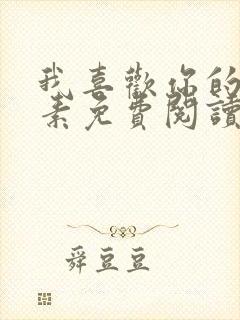 我喜歡你的
素免費閱讀
舜豆豆